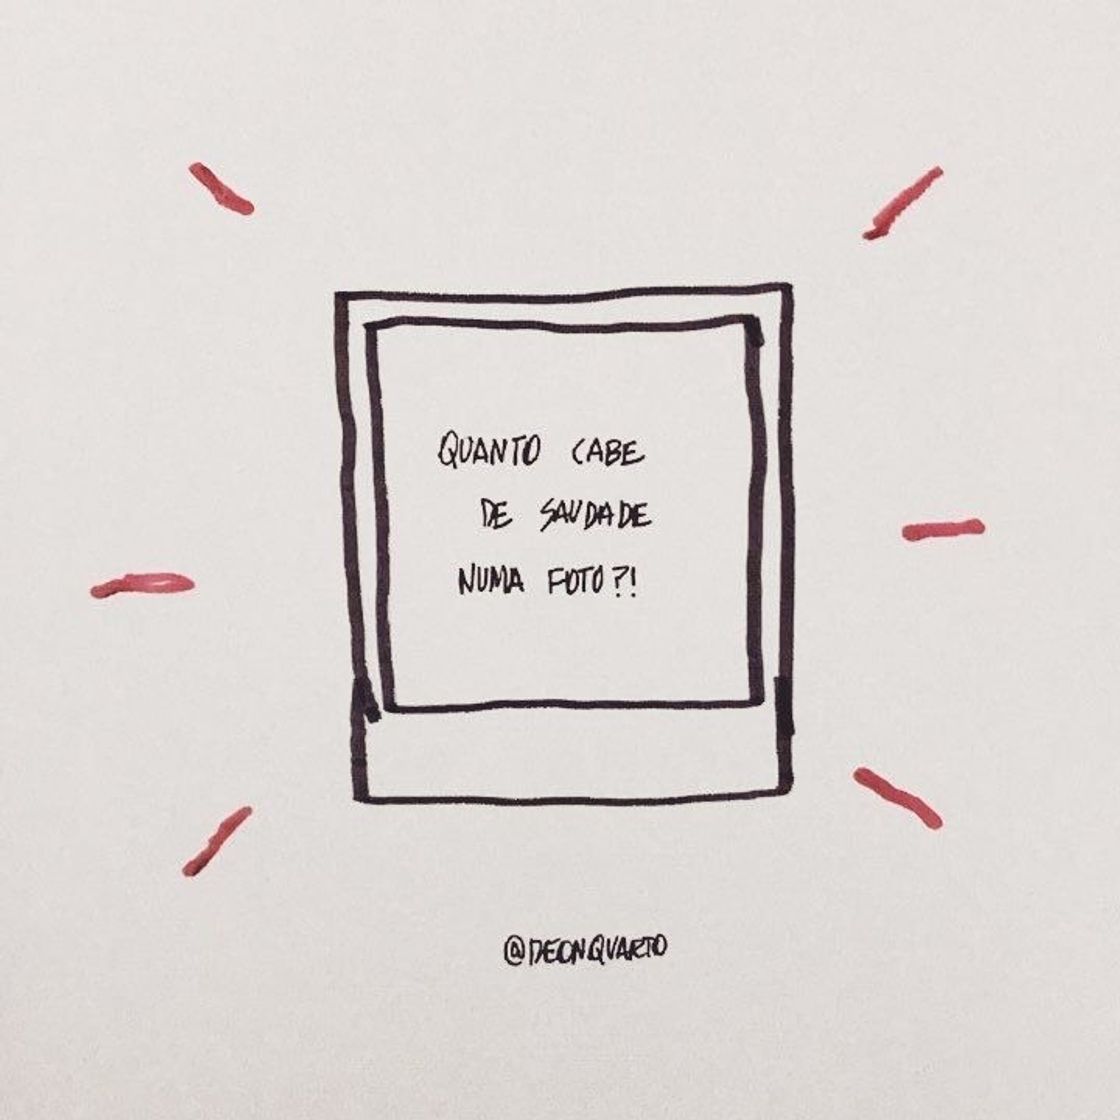 QUANTO CABE
DE SAUDADE
NUMA FOTO?!
@DEONQUARTO